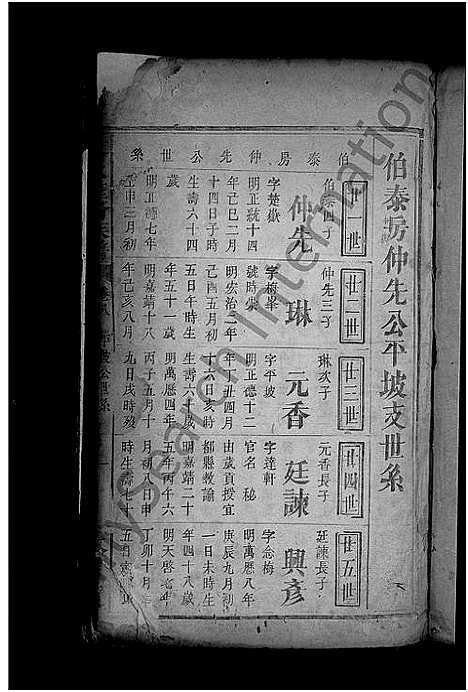 伯泰房仲先公平坡支世系
伯泰房仲先公世系
廿一世
伯泰四子
仲先
字楚嶽
明正統十四
年己巳二月
十四日子時
生壽六十四
歲
明正德七年
壬申二月初
廿二世
仲先三子
琳
字梅峯
號時榮
明宏治二年
己酉五月初
五日午時生
年五十一歲
明嘉靖十八
年己亥八月
廿三世
琳次子
元香
字平坡
明正德十二
年丁丑四月
十六日亥時
生壽六十歲
明萬曆四年
丙子五月十
九日戌時歿
廿四世
元香長子
廷諫
字達軒
官名 秘
由歲貢授宜
都縣教諭
明嘉靖二十
五年丙午六
月初八日申
時生壽七十
廿五世
廷諫長子
興彥
字念梅
明萬曆八年
庚辰九月初
一日未時生
年四十八歲
明天啓 年
丁卯十月
五日
平坡公世系
MySearch International